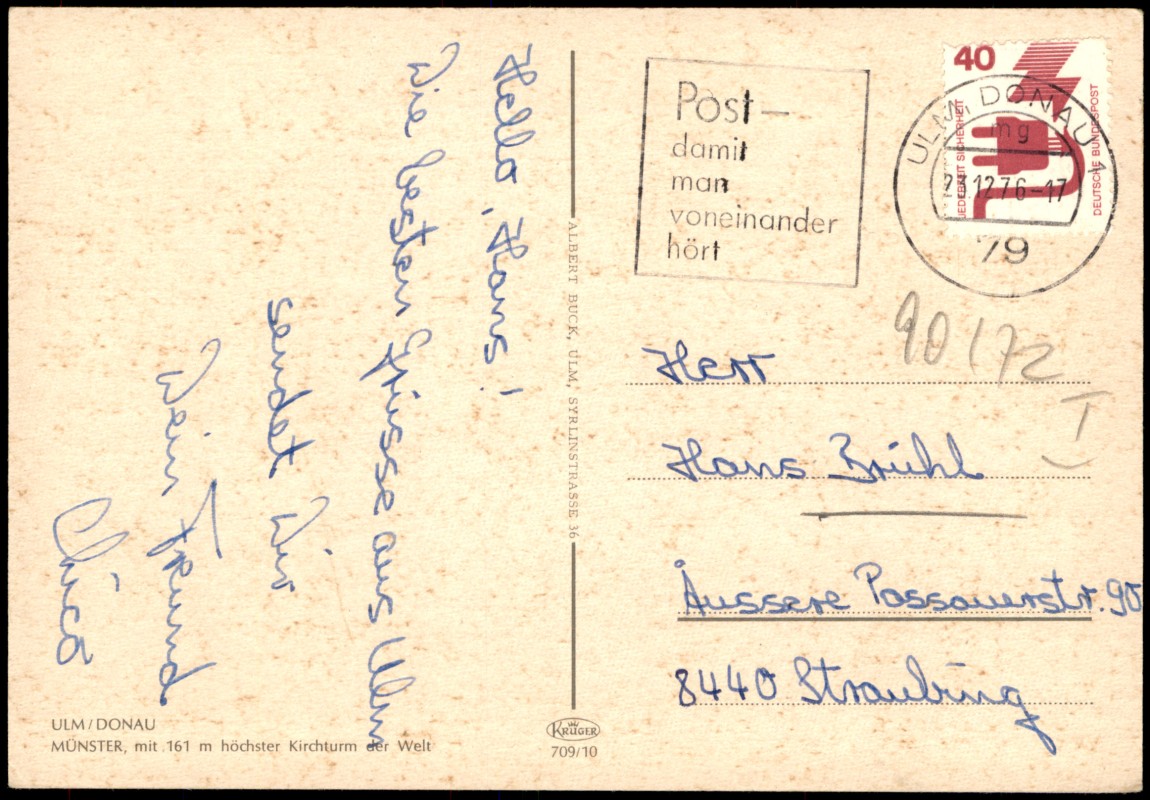 Hello, Hans!
Die besten Grüsse aus Ulm
sendet Dir
Dein Freund
ULM/DONAU
MÜNSTER, mit 161 m höchster Kirchturm der Welt
ALBERT BUCK, ULM, SYRLINSTRASSE 36
KRÜGER
709/10
Post –
damit
man
voneinander
hört
40
JEDERZEIT SICHERHEIT
DEUTSCHE BUNDESPOST
ULM, DONAU 1
mg
12.76-17
79
90/72
I
Herr
Hans Brühl
Äussere Passauerstr. 90
8440 Straubing